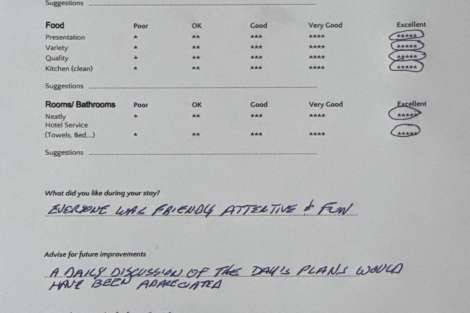 Suggestions
Food Poor OK Good Very Good Excellent
Presentation * ** *** **** *****
Variety * ** *** **** *****
Quality * ** *** **** *****
Kitchen (clean) * ** *** **** *****
Suggestions
Rooms/ Bathrooms Poor OK Good Very Good Excellent
Neatly * ** *** **** *****
Hotel Service
(Towels, Bed...) * ** *** **** *****
Suggestions
What did you like during your stay?
EVERYONE WAS FRIENDLY ATTENTIVE & FUN
Advise for future improvements
A DAILY DISCUSSION OF THE DAY'S PLANS WOULD
HAVE BEEN APPRECIATED